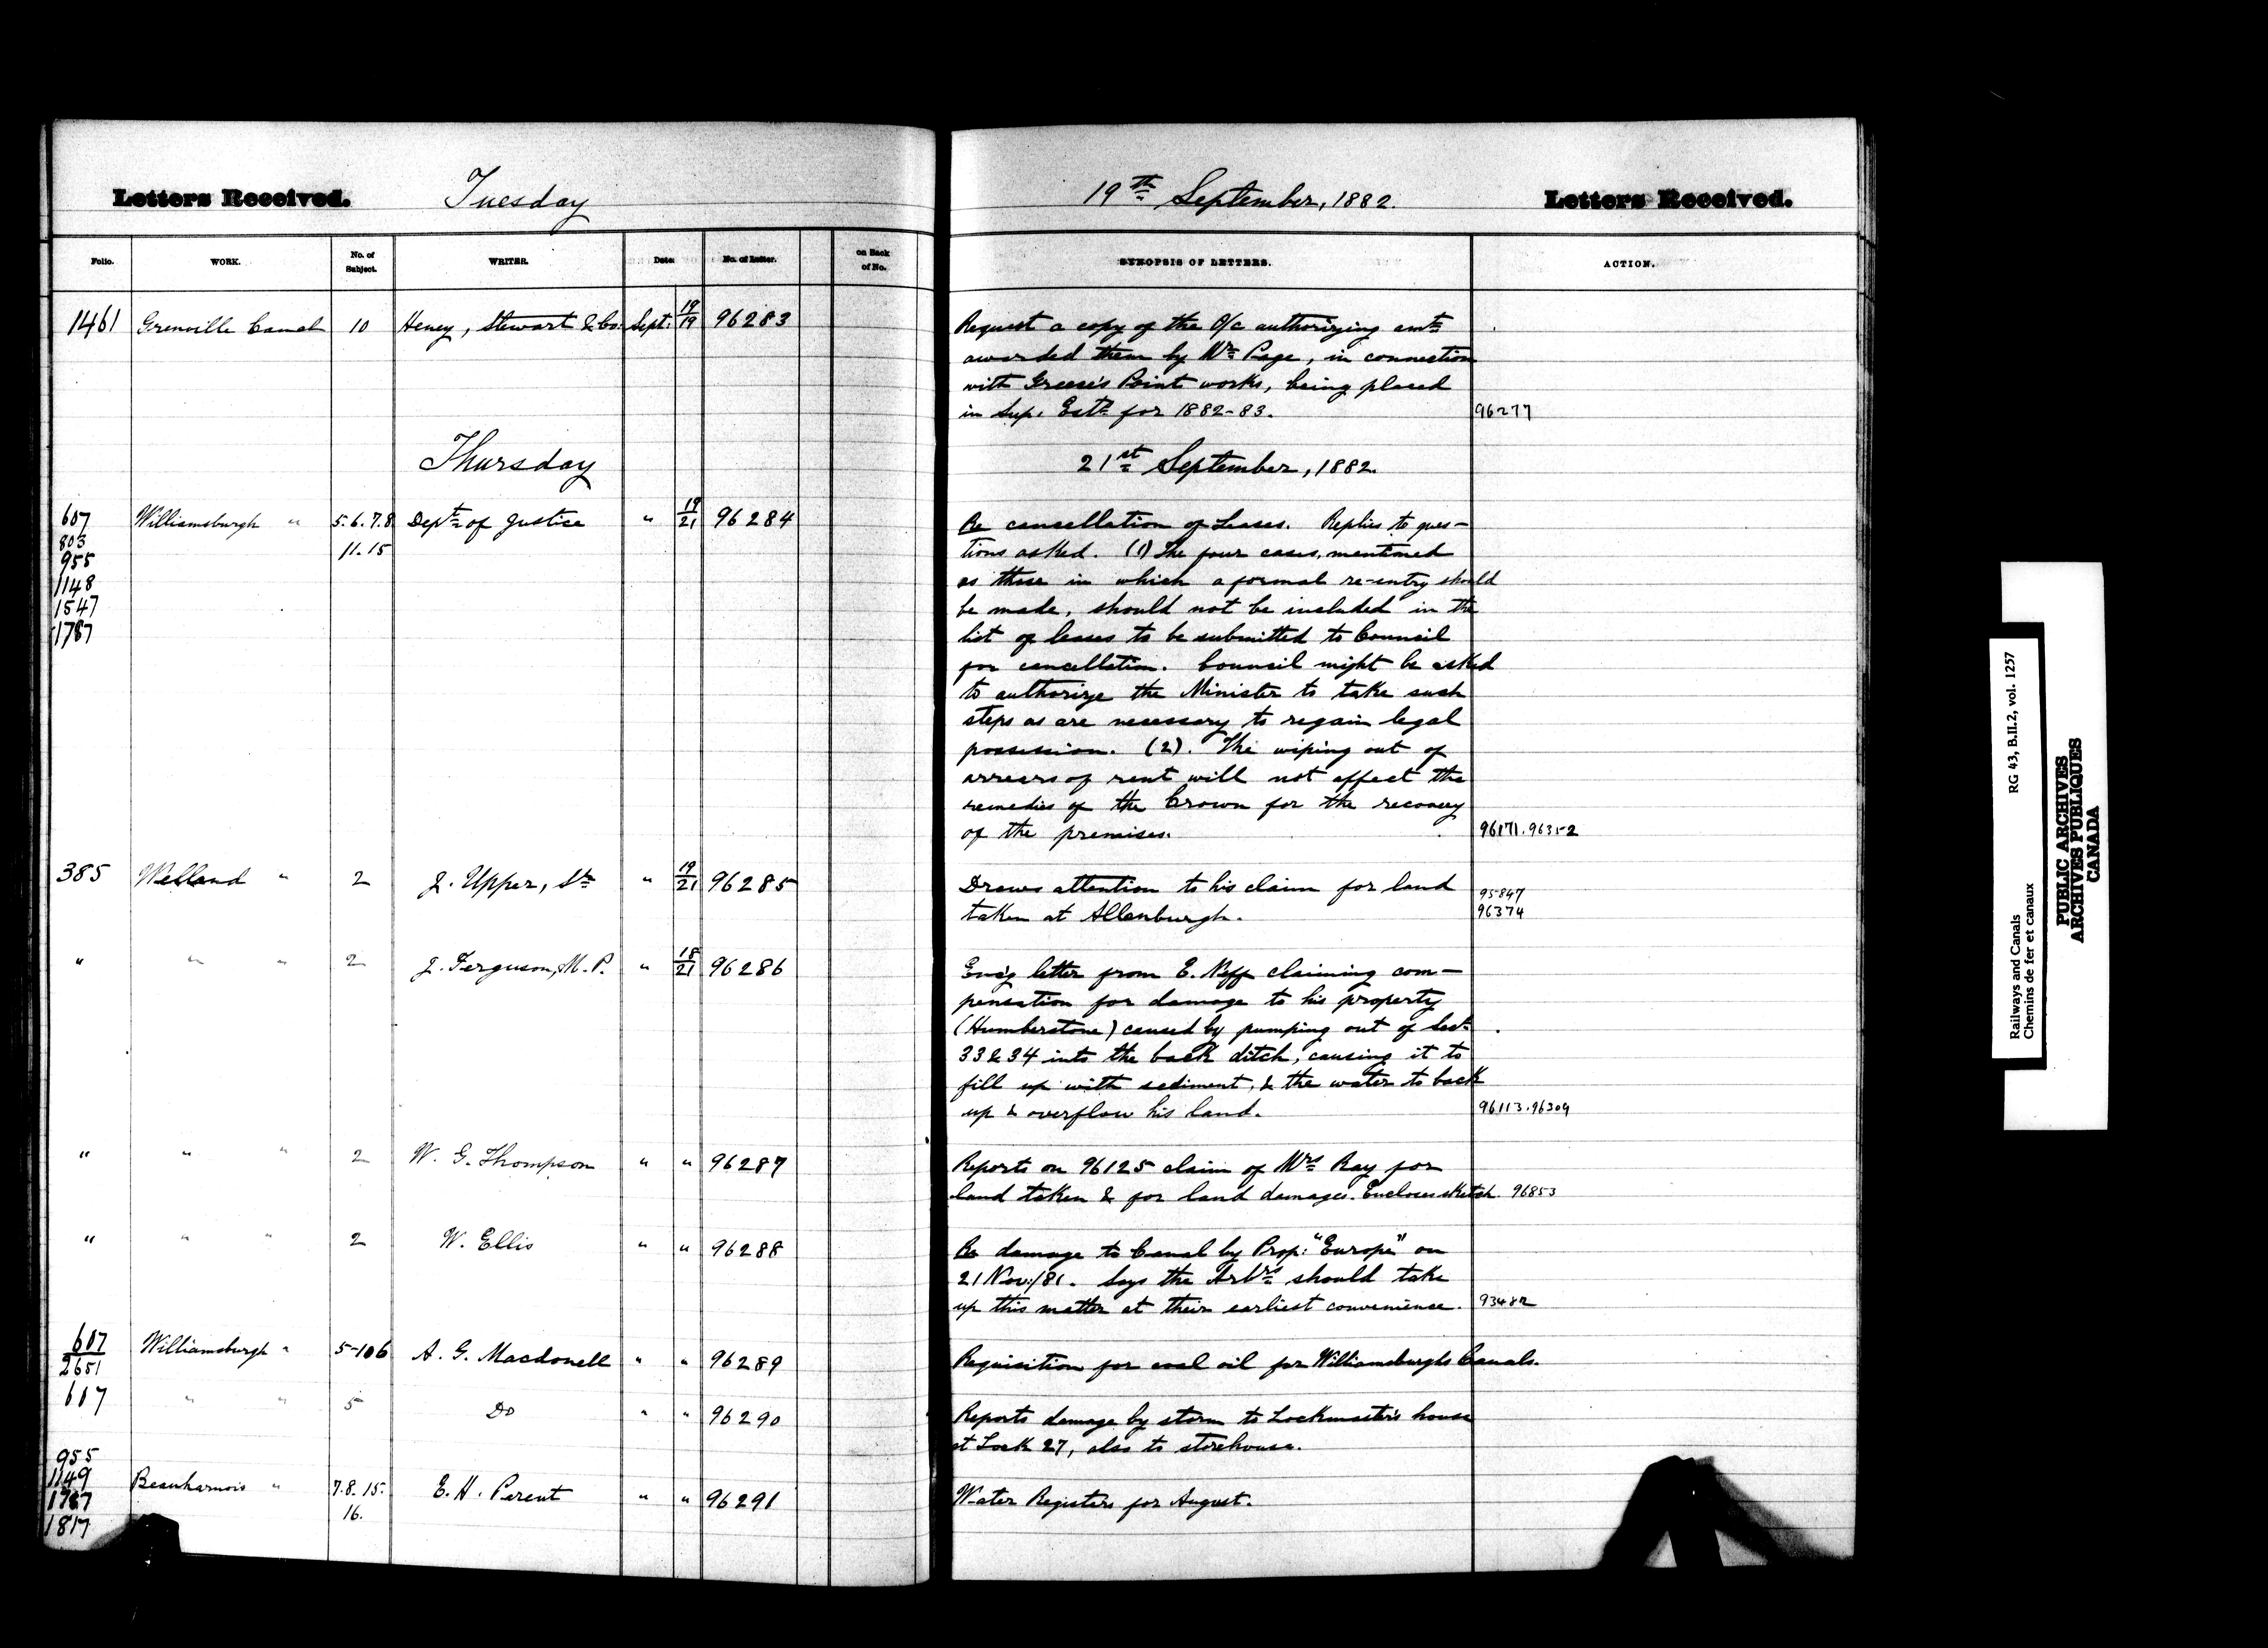 Letters Received. Tuesday 19th September, 1882. Letters Received.
Folio. WORK. No. of Subject. WRITER. Date: No. of Letter. on Back of No. SYNOPSIS OF LETTERS. ACTION.
1461 Grenville Canal 10 Heney, Stewart & Co. Sept: 19/19 96283 Request a copy of the O/c authorizing amts
awarded them by Mr Page, in connection
with Greece's Point works, being placed
in Sup. Ests for 1882-83. 96277
Thursday 21st September, 1882.
607 Williamsburgh " 5.6.7.8 Dept of Justice " 19/21 96284 Re cancellation of Leases. Replies to ques-
803 11.15 tions asked. (1) The four cases, mentioned
955 as those in which a formal re-entry should
1148 be made, should not be included in the
1547 list of leases to be submitted to Council
1787 for cancellation. Council might be asked
to authorize the Minister to take such
steps as are necessary to regain legal
possession. (2). The wiping out of
arrears of rent will not affect the
remedies of the Crown for the recovery
of the premises. 96171.96352
385 Welland " 2 J. Upper, Sr " 19/21 96285 Draws attention to his claim for land 95847
taken at Allanburgh. 96374
" " " 2 J. Ferguson, M.P. " 18/21 96286 Encl'g letter from E. Neff claiming com-
pensation for damage to his property
(Humberstone) caused by pumping out of Sect.
33 & 34 into the back ditch, causing it to
fill up with sediment, & the water to back
up & overflow his land. 96113.96309
" " " 2 W. G. Thompson " " 96287 Reports on 96125 claim of Mrs Ray for
land taken & for land damages. Encloses sketch. 96853
" " " 2 W. Ellis " " 96288 Re damage to Canal by Prop: "Europe" on
21 Nov:/81. Says the Arbrs should take
up this matter at their earliest convenience. 93482
607/2651 Williamsburgh " 5-106 A. G. Macdonell " " 96289 Requisition for coal oil for Williamsburgh Canals.
607 " " 5 Do " " 96290 Reports damage by storm to Lockmaster's house
at Lock 27, also to storehouse.
955
1149 Beauharnois " 7.8.15. E. H. Parent " " 96291 Water Registers for August.
1787 16.
1817
Railways and Canals RG 43, B.II.2, vol. 1257
Chemins de fer et canaux
PUBLIC ARCHIVES
ARCHIVES PUBLIQUES
CANADA